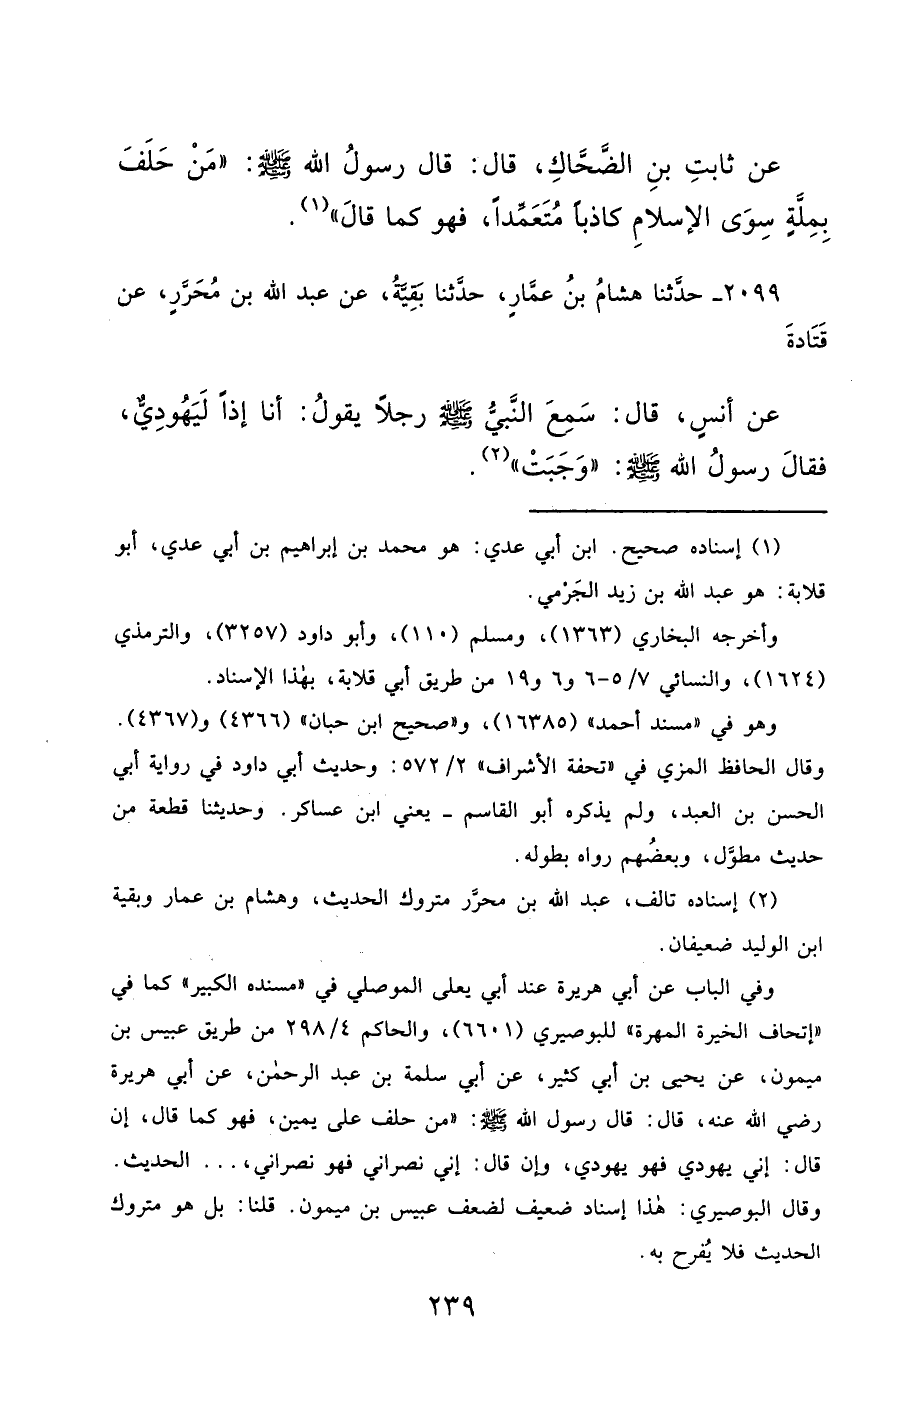 عن ثابتِ بنِ الضَّحَّاكِ، قال: قال رسولُ الله ﷺ: «مَنْ حَلَفَ
بِمِلَّةٍ سِوَى الإسلامِ كاذباً مُتَعَمِّداً، فهو كما قالَ»(١).
٢٠٩٩ـ حدَّثنا هشامُ بنُ عمَّارٍ، حدَّثنا بَقِيَّةُ، عن عبد الله بن مُحَرَّرٍ، عن
قَتَادةَ
عن أنسٍ، قال: سَمِعَ النَّبيُّ ﷺ رجلاً يقولُ: أنا إذاً لَيَهُودِيٌّ،
فقالَ رسولُ الله ﷺ: «وَجَبَتْ»(٢).
(١) إسناده صحيح. ابن أبي عدي: هو محمد بن إبراهيم بن أبي عدي، أبو
قلابة: هو عبد الله بن زيد الجَرْمي.
وأخرجه البخاري (١٣٦٣)، ومسلم (١١٠)، وأبو داود (٣٢٥٧)، والترمذي
(١٦٢٤)، والنسائي ٧/ ٥-٦ و٦ و١٩ من طريق أبي قلابة، بهٰذا الإسناد.
وهو في «مسند أحمد» (١٦٣٨٥)، و«صحيح ابن حبان» (٤٣٦٦) و(٤٣٦٧).
وقال الحافظ المزي في «تحفة الأشراف» ٢/ ٥٧٢: وحديث أبي داود في رواية أبي
الحسن بن العبد، ولم يذكره أبو القاسم ـ يعني ابن عساكر. وحديثنا قطعة من
حديث مطوَّل، وبعضُهم رواه بطوله.
(٢) إسناده تالف، عبد الله بن محرَّر متروك الحديث، وهشام بن عمار وبقية
ابن الوليد ضعيفان.
وفي الباب عن أبي هريرة عند أبي يعلى الموصلي في «مسنده الكبير» كما في
«إتحاف الخيرة المهرة» للبوصيري (٦٦٠١)، والحاكم ٤/ ٢٩٨ من طريق عبيس بن
ميمون، عن يحيى بن أبي كثير، عن أبي سلمة بن عبد الرحمٰن، عن أبي هريرة
رضي الله عنه، قال: قال رسول الله ﷺ: «من حلف على يمين، فهو كما قال، إن
قال: إني يهودي فهو يهودي، وإن قال: إني نصراني فهو نصراني،... الحديث.
وقال البوصيري: هٰذا إسناد ضعيف لضعف عبيس بن ميمون. قلنا: بل هو متروك
الحديث فلا يُفرح به.
٢٣٩